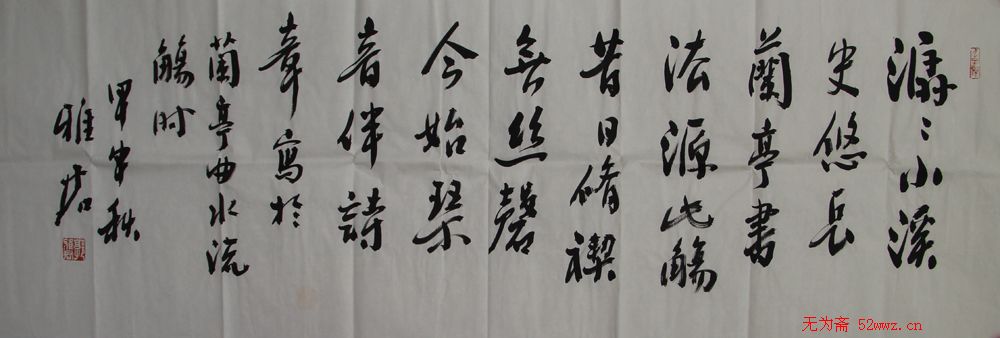 潺〻小溪
史悠長
蘭亭書
法源此觴
昔日脩禊
無絲磬
今始琴
音伴詩
章寫於
蘭亭曲水流
觴时
甲申秋
雅
无为斋 52wwz.cn